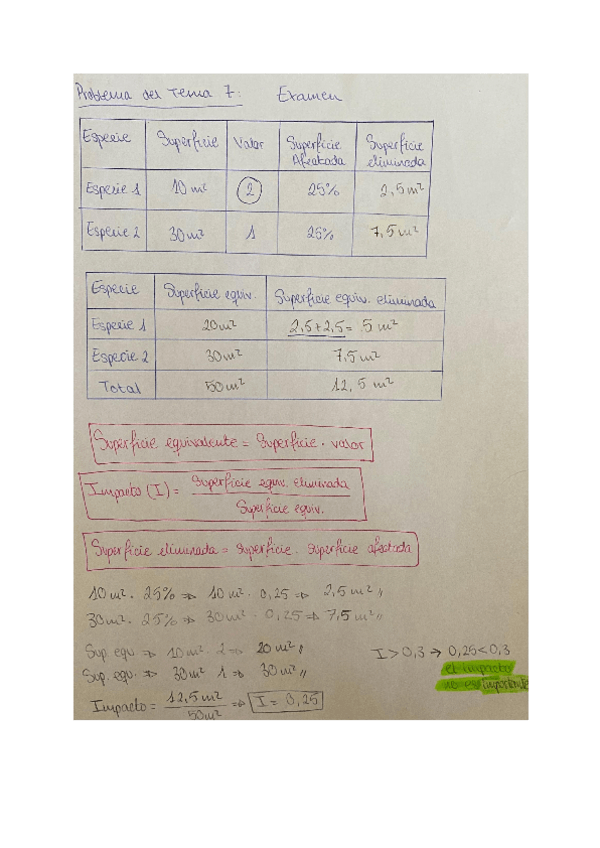 Problema del Tema 7: Examen
Especie Superficie Valor Superficie Afectada Superficie eliminada
Especie 1 10 m² 2 25% 2,5 m²
Especie 2 30 m² 1 25% 7,5 m²
Especie Superficie equiv. Superficie equiv. eliminada
Especie 1 20 m² 2,5+2,5= 5 m²
Especie 2 30 m² 7,5 m²
Total 50 m² 12,5 m²
Superficie equivalente = Superficie · valor
Impacto (I) = Superficie equiv. eliminada
Superficie equiv.
Superficie eliminada = Superficie · Superficie afectada
10 m² · 25% ⇒ 10 m² · 0,25 ⇒ 2,5 m²,,
30 m² · 25% ⇒ 30 m² · 0,25 ⇒ 7,5 m²,,
Sup. equ ⇒ 10 m² · 2 ⇒ 20 m²,,
Sup. equ. ⇒ 30 m² · 1 ⇒ 30 m²,,
I > 0,3 → 0,25 < 0,3
el impacto
no es importante
Impacto = 12,5 m² ⇒ I = 0,25
50 m²